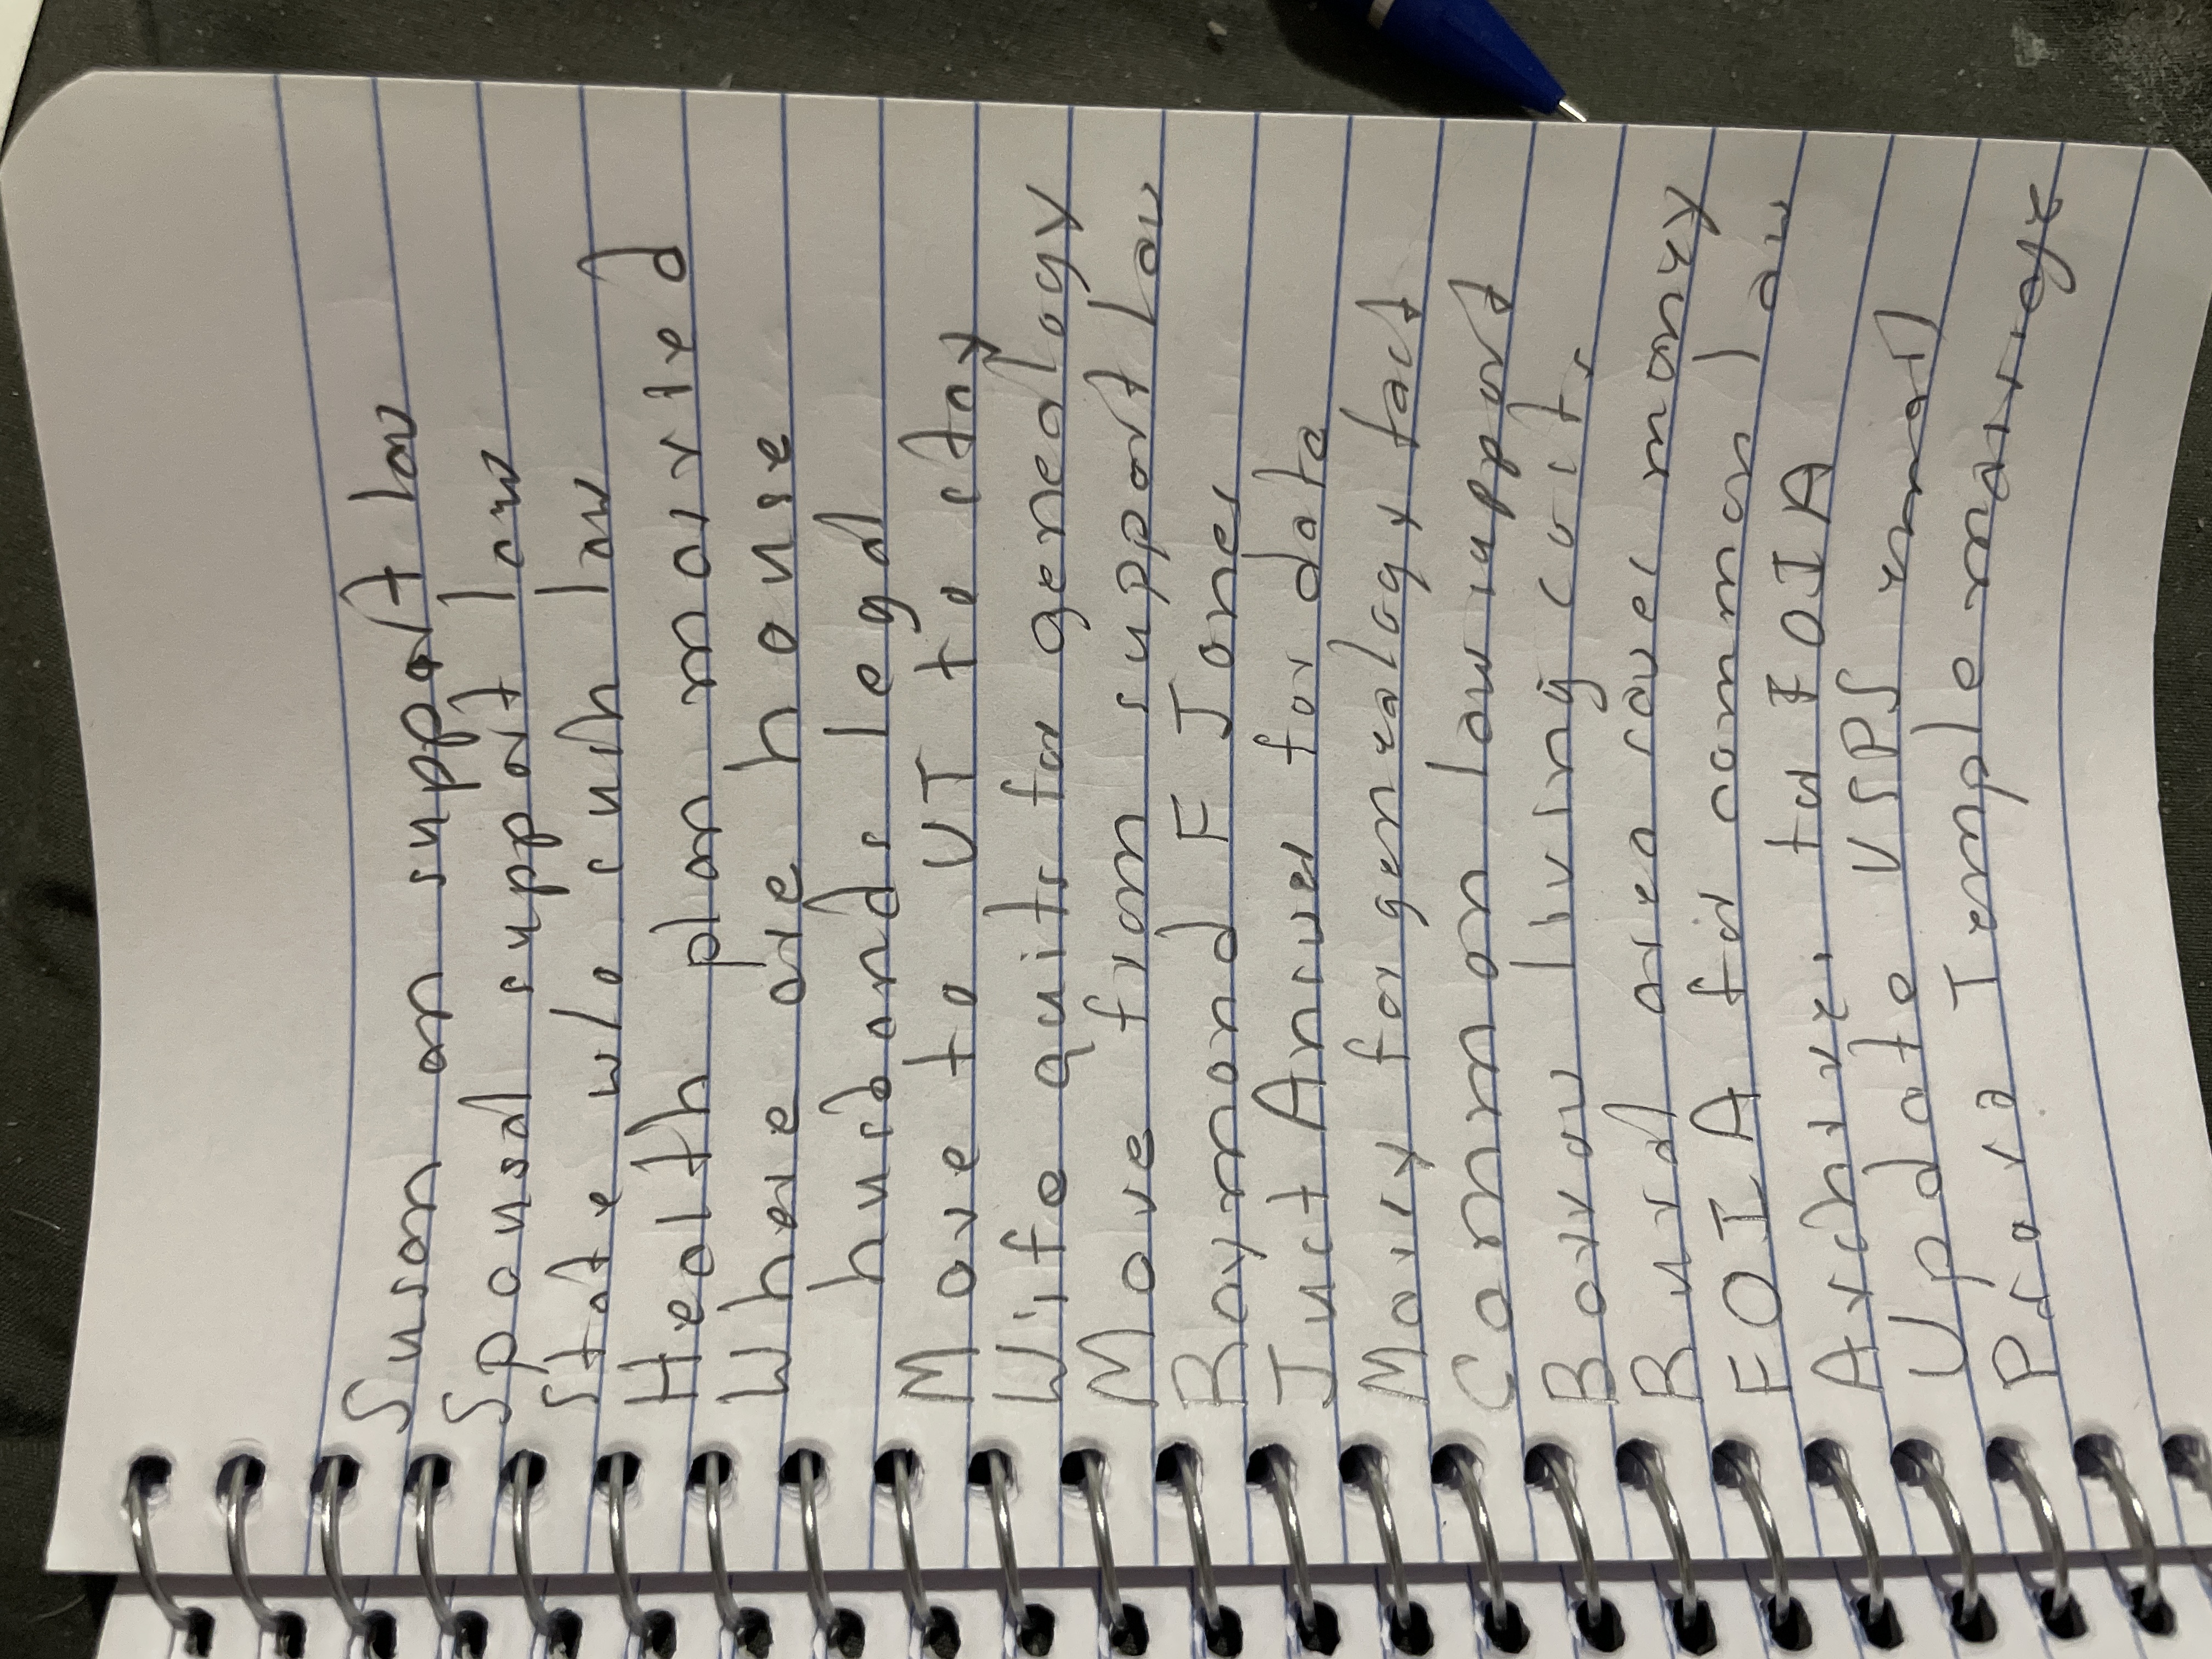 Susan on support law
Spousal support law
State w/o such law
Health plan married
Where are house
husbands legal
Move to UT to stay
Wife quits for genealogy
Move from support law
Raymond F Jones
Just Answer for data
Marry for genealogy fact
Common law support
Borrow living cost
Rural area saves money
FOIA for common law
Archives for FOIA
Update USPS email
Prove Temple marriage